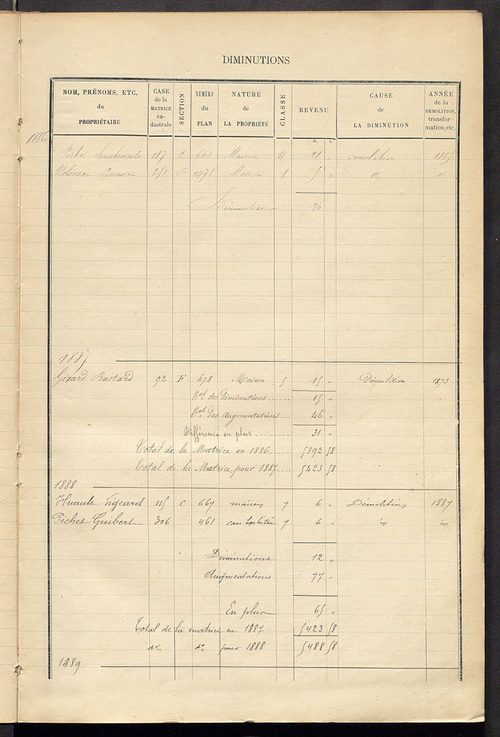 DIMINUTIONS
NOM, PRÉNOMS, ETC. du PROPRIÉTAIRE
CASE de la MATRICE ca-dastrale
SECTION
NUMÉRO du PLAN
NATURE de LA PROPRIÉTÉ
CLASSE
REVENU
CAUSE de LA DIMINUTION
ANNÉE de la DÉMOLITION, transfor-mation, etc.
1886
187 C Maison 21 démolition 1885
C 1472 Maison 8 5 " d°
Diminution 26
1887
Girard Bastard 92 F 698 Maison 5 15 " Démolition 1873
Tal des Diminutions 15 "
Tal des Augmentations 46 "
Différence en plus 31 "
Total de la Matrice en 1886 5392 58
Total de la Matrice pour 1887 5423 58
1888
Huault Ligeard 115 C 667 maison 7 6 " Démolition 1887
Pichet Guibert 306 461 7 6 " id id
Diminutions 12 "
Augmentations 77 "
En plus 65 "
Total de la matrice en 1887 5423 58
do do pour 1888 5488 58
1889